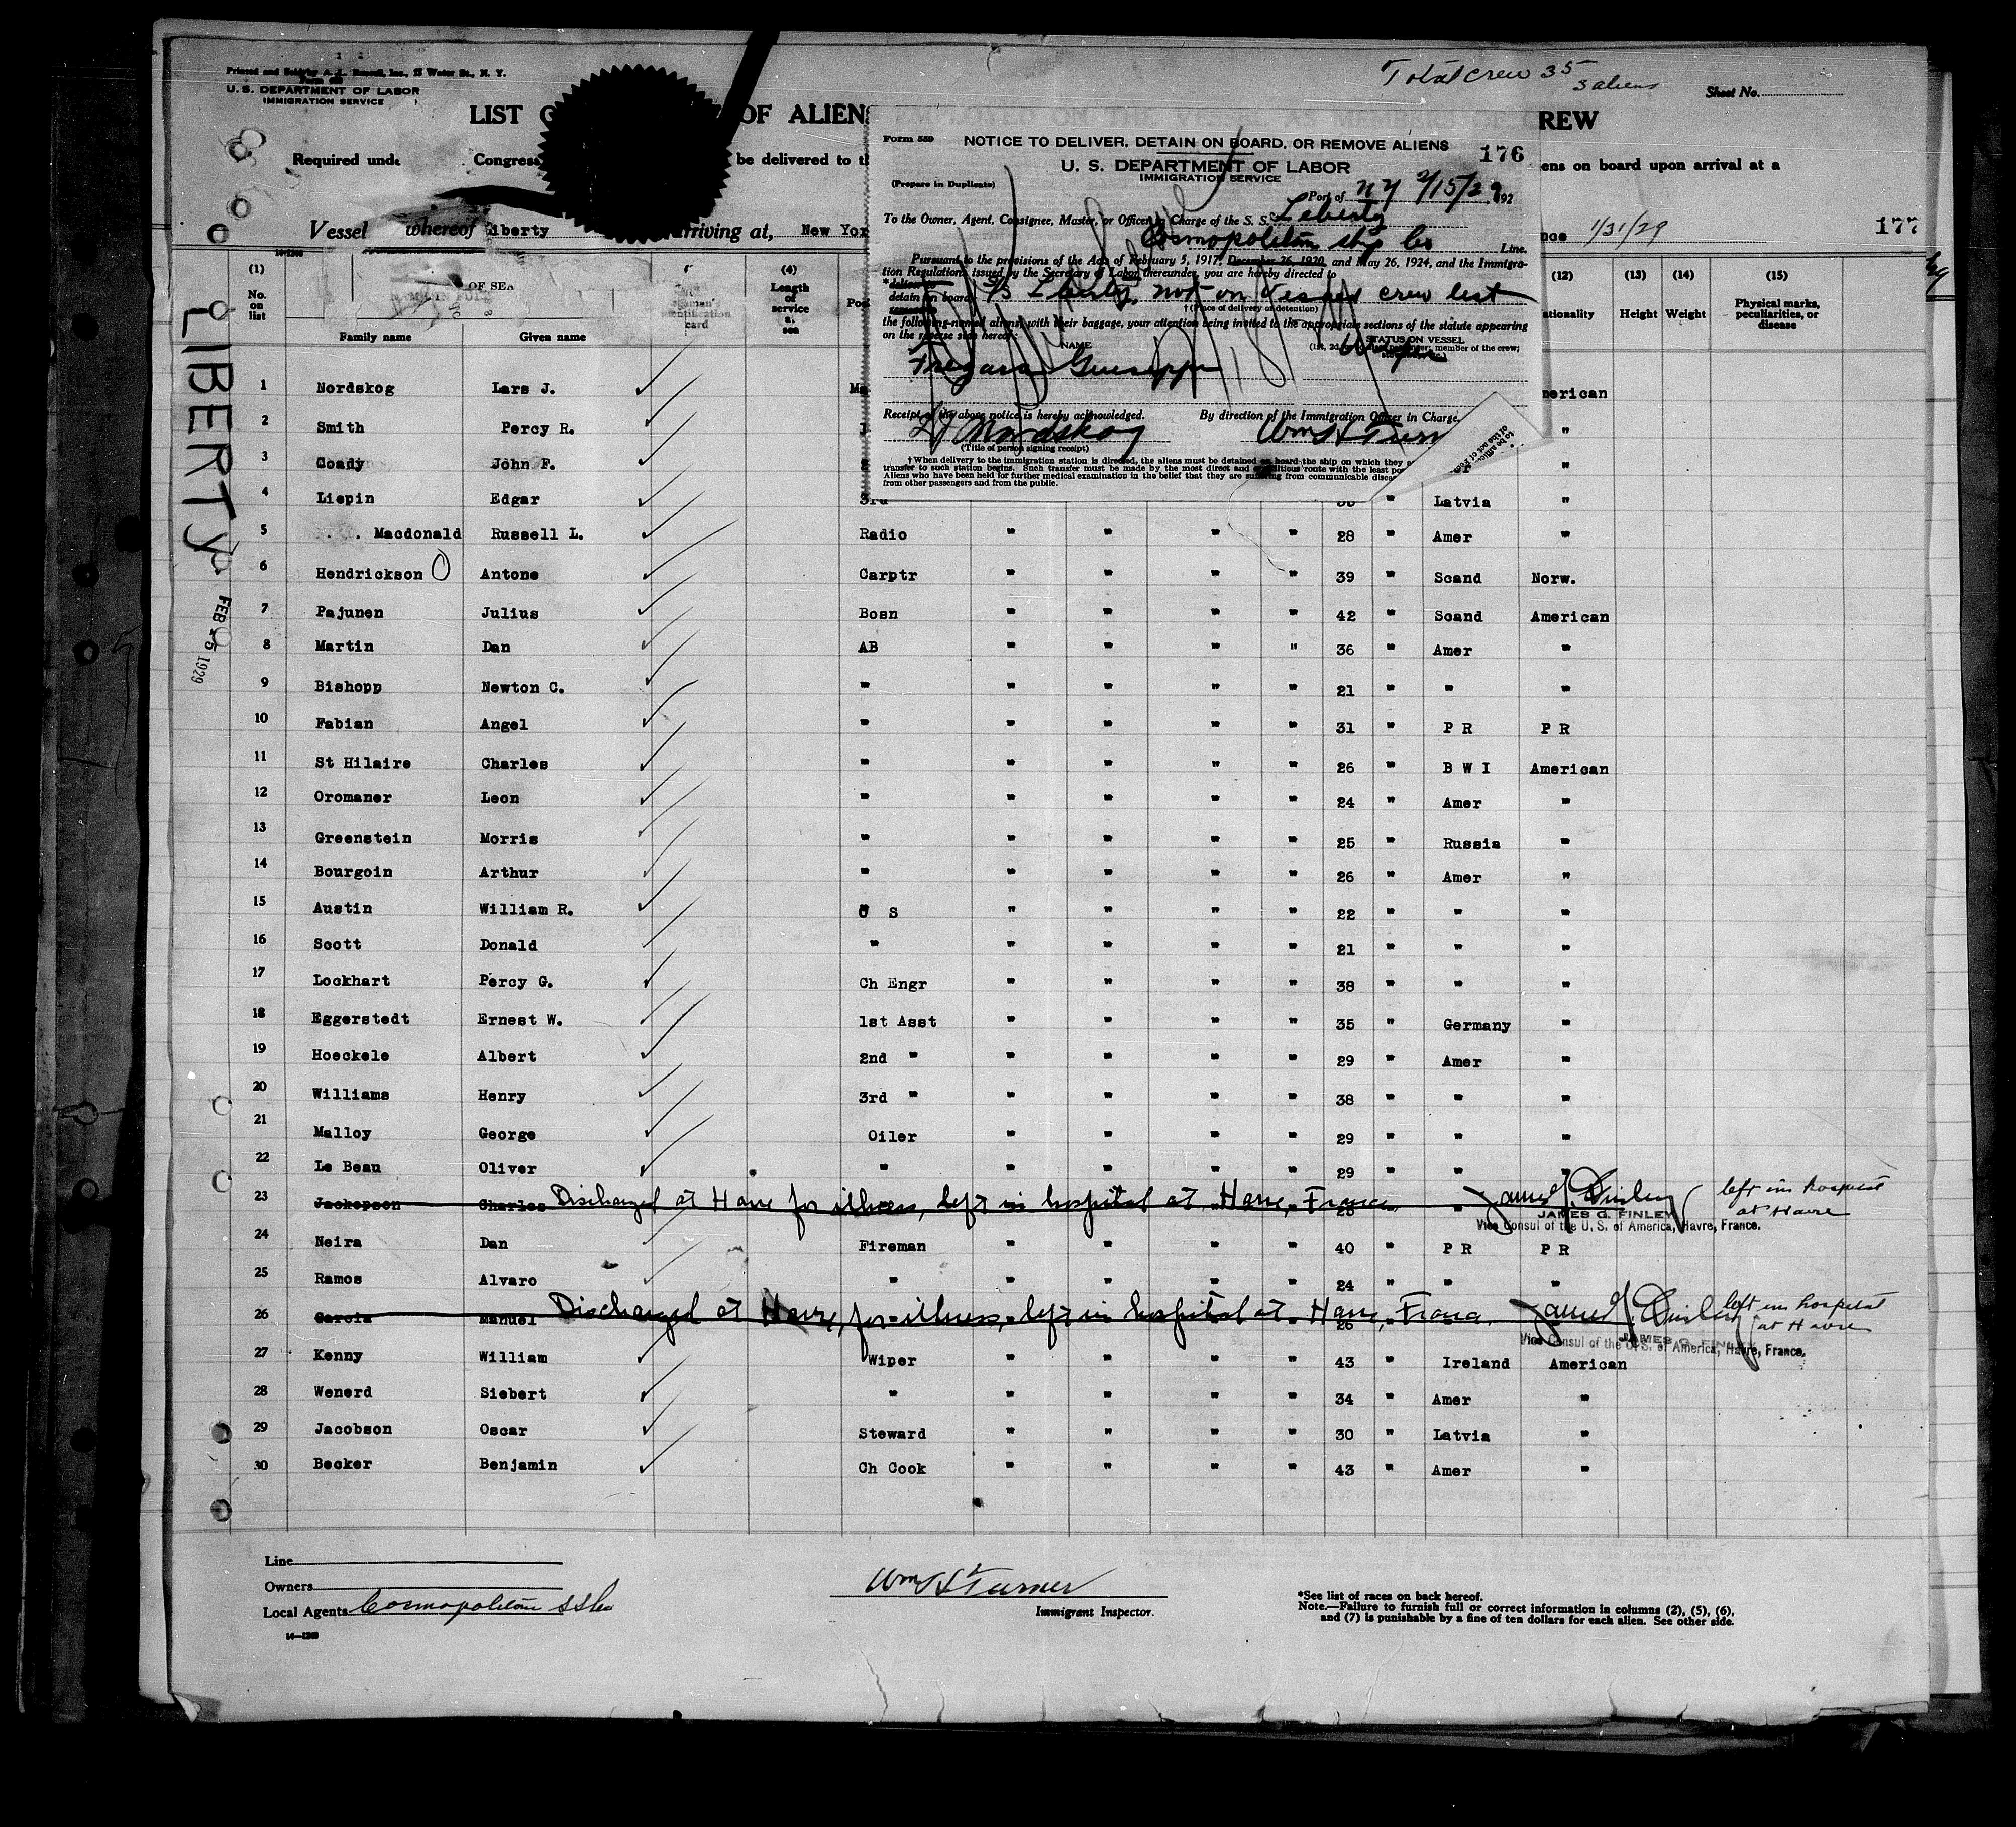 Printed and Sold by A. L. Russell, Inc., 15 Water St., N. Y.
U. S. DEPARTMENT OF LABOR
IMMIGRATION SERVICE
Total crew 35
3 aliens
Sheet No.
LIST OF ALIENS EMPLOYED ON THE VESSEL AS MEMBERS OF CREW
Required under Congress be delivered to th ens on board upon arrival at a
Vessel whereof Liberty arriving at, New Yor 1/31/29 177
LIBERTY
FEB 15 1929
Form 559 NOTICE TO DELIVER, DETAIN ON BOARD, OR REMOVE ALIENS 176
U. S. DEPARTMENT OF LABOR
IMMIGRATION SERVICE
(Prepare in Duplicate)
Port of NY 2/15/29, 192
To the Owner, Agent, Consignee, Master, or Officer in Charge of the S. S. Liberty
Cosmopolitan ship Co Line.
Pursuant to the provisions of the Act of February 5, 1917, December 26, 1920, and May 26, 1924, and the Immigra-
tion Regulations issued by the Secretary of Labor thereunder, you are hereby directed to
*deliver to
detain on board S/S Liberty, not on visaed crew list
remove to
†(Place of delivery or detention)
the following-named aliens, with their baggage, your attention being invited to the appropriate sections of the statute appearing
on the reverse side hereof:
NAME STATUS ON VESSEL
member of the crew;
Giuseppe Wiper
Receipt of the above notice is hereby acknowledged. By direction of the Immigration Officer in Charge.
L J Nordskog Wm S Turn
(Title of person signing receipt)
†When delivery to the immigration station is directed, the aliens must be detained on board the ship on which they
transfer to such station begins. Such transfer must be made by the most direct and expeditious route with the least pos
Aliens who have been held for further medical examination in the belief that they are suffering from communicable disea
from other passengers and from the public.
(1) (4) (12) (13) (14) (15)
No. on list Family name Given name Length of service at sea Pos ationality Height Weight Physical marks, peculiarities, or disease
1 Nordskog Lars J. Ma merican
2 Smith Percy R. "
3 Coady John F. "
4 Liepin Edgar 3rd Latvia "
5 Macdonald Russell L. Radio " " " " 28 " Amer "
6 Hendrickson Antone Carptr " " " " 39 " Scand Norw.
7 Pajunen Julius Bosn " " " " 42 " Scand American
8 Martin Dan AB " " " " 36 " Amer "
9 Bishopp Newton C. " " " " " 21 " " "
10 Fabian Angel " " " " " 31 " P R P R
11 St Hilaire Charles " " " " " 26 " B W I American
12 Oromaner Leon " " " " " 24 " Amer "
13 Greenstein Morris " " " " " 25 " Russia "
14 Bourgoin Arthur " " " " " 26 " Amer "
15 Austin William R. O S " " " " 22 " " "
16 Scott Donald " " " " " 21 " " "
17 Lockhart Percy G. Ch Engr " " " " 38 " " "
18 Eggerstedt Ernest W. 1st Asst " " " " 35 " Germany "
19 Hoeckele Albert 2nd " " " " " 29 " Amer "
20 Williams Henry 3rd " " " " " 38 " " "
21 Malloy George Oiler " " " " 29 " " "
22 Le Beau Oliver " " " " " 29 " " "
23 Jackepson Charles Discharged at Havre for illness, left in hospital at Havre, France. James G. Finley left in hospital at Havre
JAMES G. FINLEY
Vice Consul of the U. S. of America, Havre, France.
24 Neira Dan Fireman " " " " 40 " P R P R
25 Ramos Alvaro " " " " " 24 " " "
26 Garcia Manuel Discharged at Havre, for illness, left in hospital at Havre, France. 26 James G. Finley left in hospital at Havre
JAMES G. FINLEY
Vice Consul of the U. S. of America, Havre, France.
27 Kenny William Wiper " " " " 43 " Ireland American
28 Wenerd Siebert " " " " " 34 " Amer "
29 Jacobson Oscar Steward " " " " 30 " Latvia "
30 Becker Benjamin Ch Cook " " " " 43 " Amer "
Line
Owners
Local Agents Cosmopolitan S S Co
14—1260
Wm S Turner
Immigrant Inspector.
*See list of races on back hereof.
Note.—Failure to furnish full or correct information in columns (2), (5), (6),
and (7) is punishable by a fine of ten dollars for each alien. See other side.